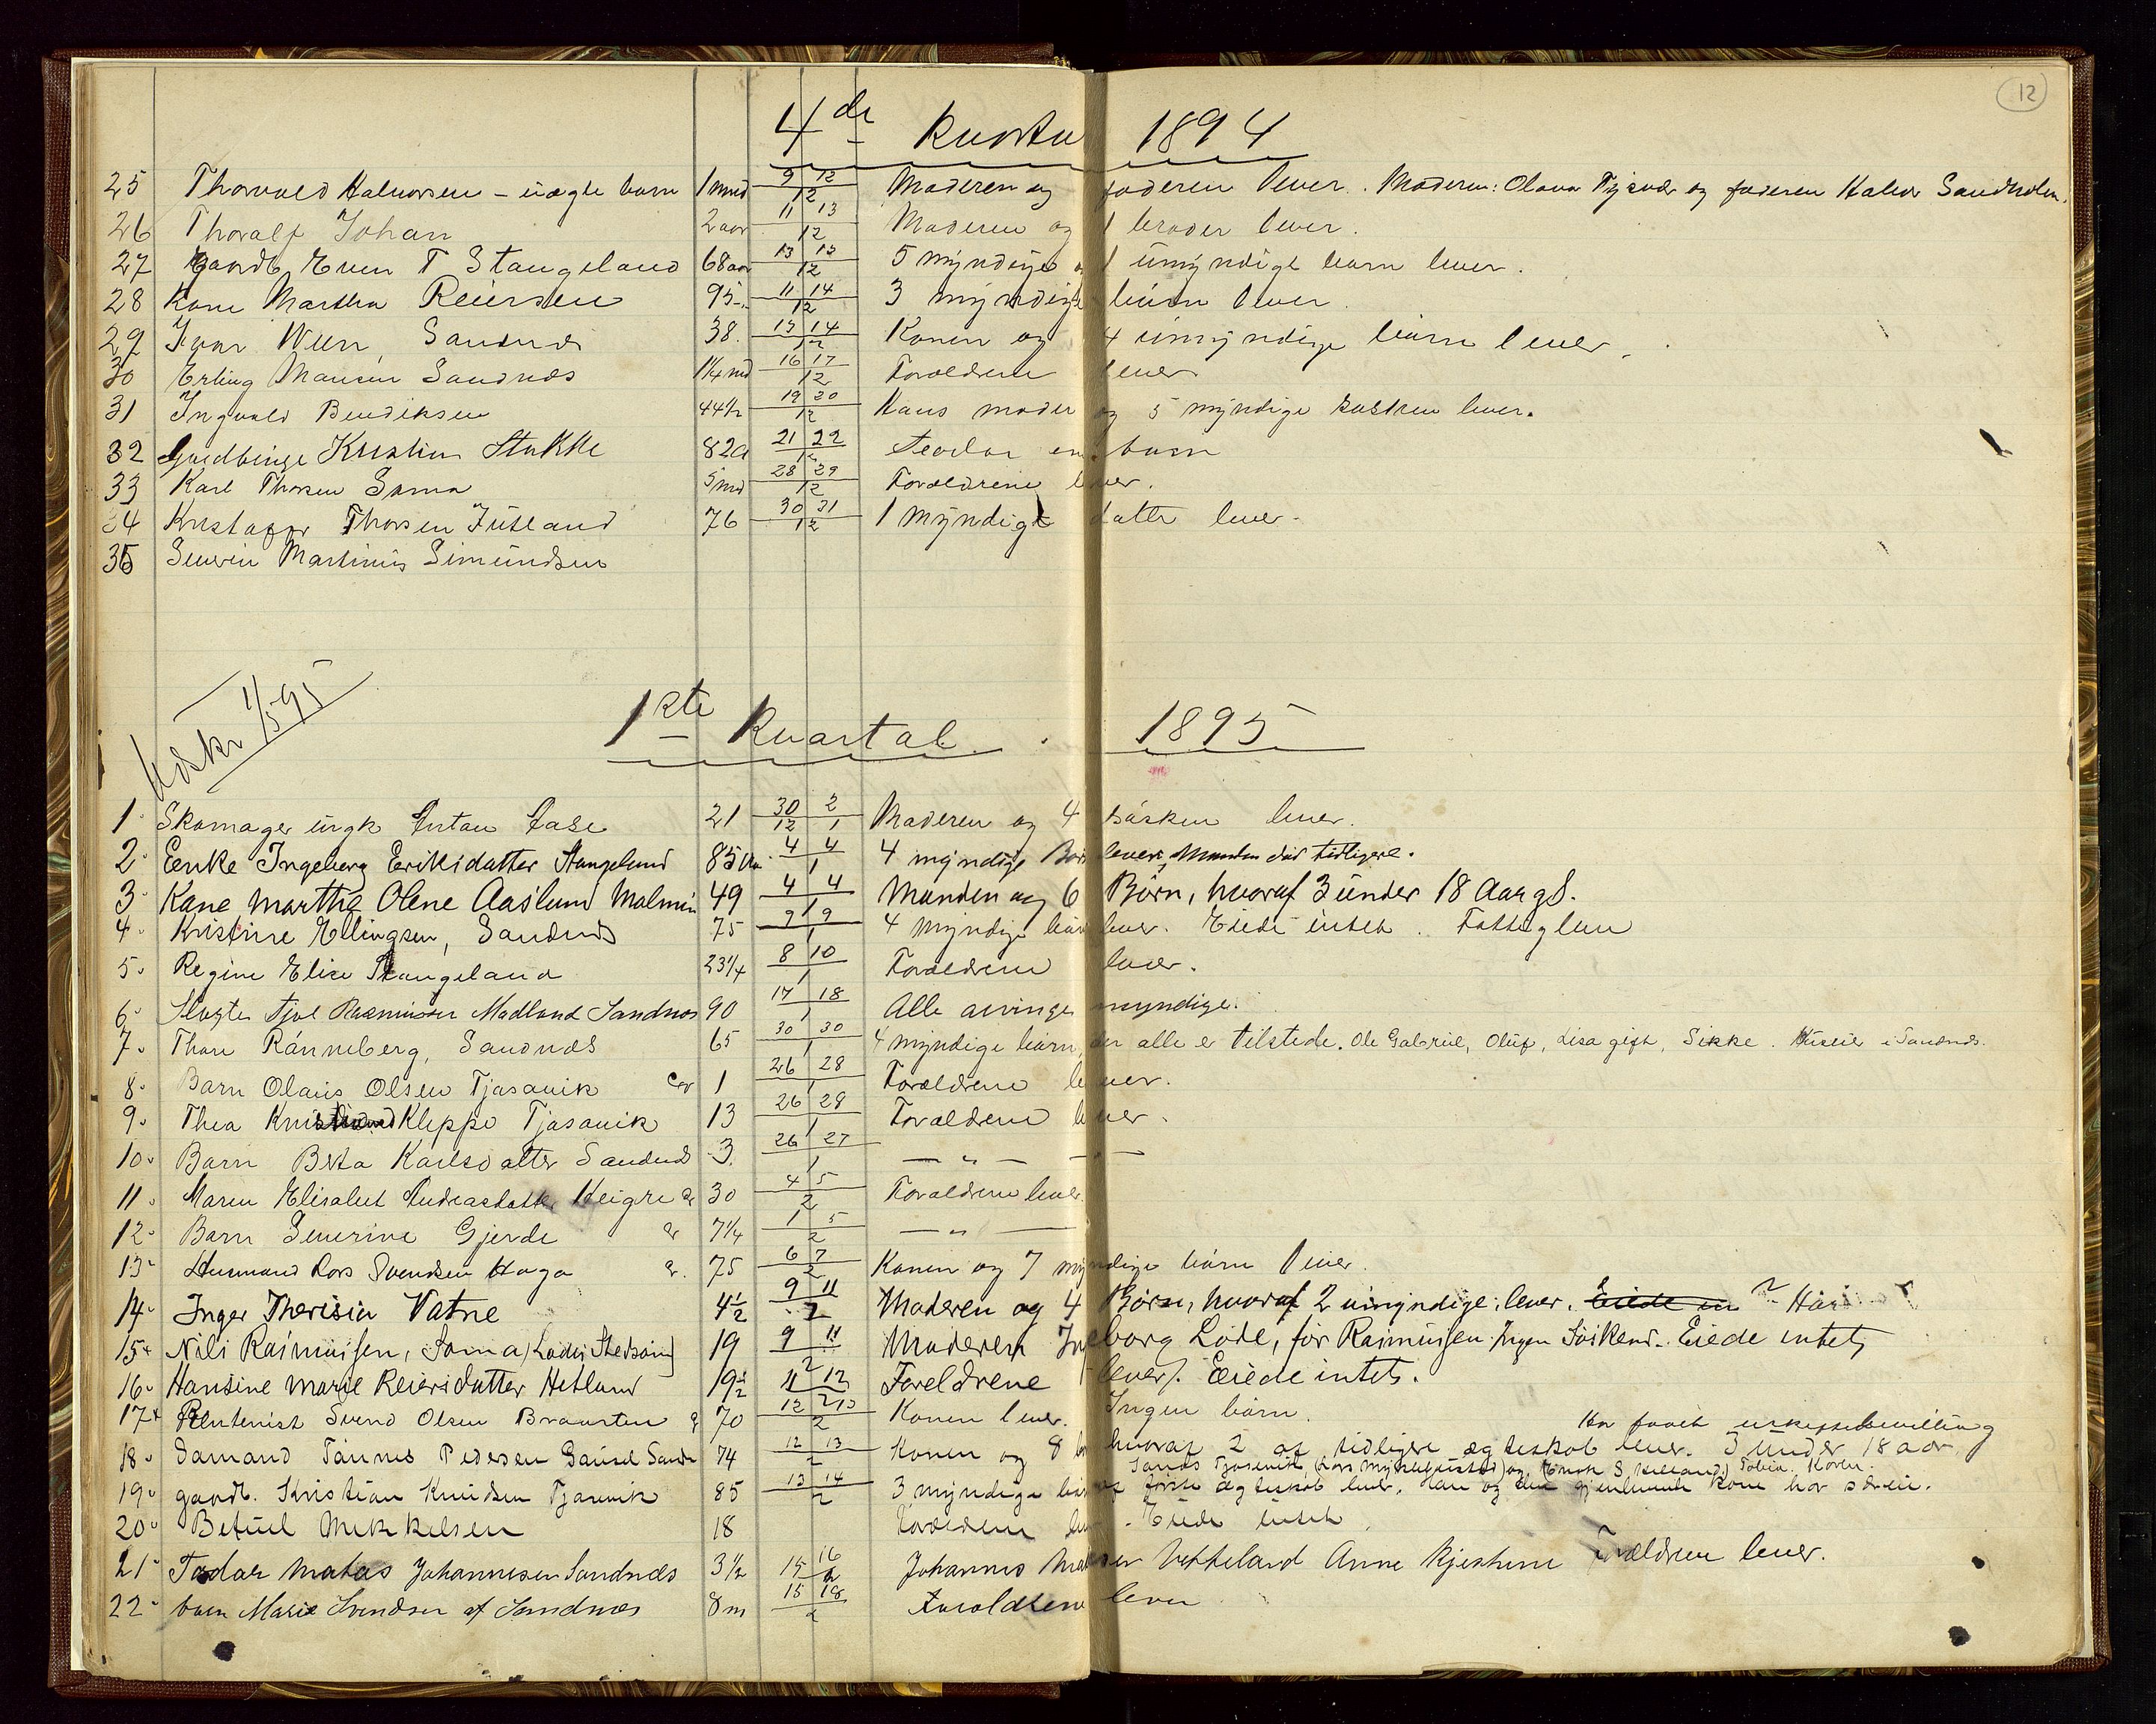 12
4de Kvarta 1894
25 Thorvald Halvorsen - uægte barn 1 mnd 9 12/12 Moderen og faderen lever. Moderen: Olava Tysvær og faderen Halvor Sandholm.
26 Thoralf Johan 2 aar 11 13/12 Moderen og 1 broder lever.
27 Gaardb. Even T Stangeland 68 aar 13 13/12 5 myndige 1 umyndigt barn lever.
28 Kone Martha Reiersen 95 11 14/12 3 myndige børn lever
29 Ivar Sandnes 38. 13 14/12 Konen og 4 umyndige børn lever.
30 Erling Hansen Sandnæs 1¼ md 16 17/12 Forældrene lever
31 Ingvald Bendiksen 44½ 19 20/12 Hans moder og 5 myndige søsken lever.
32 Kristian Stokke 82a 21 22/12 barn
33 Karl Thorsen Soma 5 md 28 29/12 Forældrene lever.
34 Kristofer Thorsen Jutland 76 30 31/12 1 myndigt datter lever.
35 Severin Martinius Simundsen
Udskr 1/5 95
1ste Kvartal. 1895
1 Skomager ungk Anton Aase 21 30/12 2/1 Moderen og 4 søsken lever.
2 Enke Ingeborg Eriksdatter Stangeland 85 4 4/1 4 myndige Børn lever, Manden død tidligere.
3 Kone Marthe Olene Aaslund Malmin 49 4 4/1 Manden og 6 Børn, hvoraf 3 under 18 Aar gl.
4 Kristine Ellingsen, Sandnes 75 9 9/1 4 myndige børn lever. Eiede intet. Fattiglem
5 Regine Elise Stangeland 23¼ 8 10/1 Forældrene lever.
6 Rasmussen Madland Sandnes 90 17 18/1 Alle arvinge myndige.
7 Thore Rønneberg, Sandnæs 65 30 30/1 4 myndige børn, der alle er tilstede. Ole Gabriel, Oluf, Lisa gift, Sikke. i Sandnæs.
8 Barn Olaus Olsen Tjasavik 1 26 28/1 Forældrene lever.
9 Thea Kleppo Tjasavik 13 26 28/1 Forældrene lever.
10 Barn Berta Karlsdatter Sandnes 3. 26 27/1 — " — — " —
11 Maren Elisabet Andreasdatter Heigre 30 4 5/2 Forældrene lever
12 Barn Severine Gjerde 7¼ 1 5/2 — " —
13 Husmand Lars Svendsen Haga 75 6 7/2 Konen og 7 myndige børn lever.
14 Inger Theresia Vatne 4½ 9 11/2 Moderen og 4 Børn, hvoraf 2 umyndige, lever. Eiede in
15 Nils Rasmussen, Soma (Lodes Stedsøn) 19 9 11/2 Moderen Ingeborg Lode, før Rasmussen. Ingen Søskend. Eiede intet,
16 Hansine Marie Reiersdatter Hetland 19½ 11 12/2 Foreldrene lever. Eiede intet.
17 Svend Olsen Braasten 70 12 13/2 Konen lever. Ingen børn.
Har faaet uskiftebevilling
18 Tønnes Pedersen Gausel Sandn 74 12 13/2 Konen og 8 b hvoraf 2 af tidligere ægteskab lever. 3 under 18 aar.
19 gaardb. Kristian Knudsen Tjasavik 85 13 14/2 3 myndige børn af første ægteskab lever. Han og den gjenlevende kone har særeie.
20 Betuel Mikkelsen 18 Forældrene lever. Eiede intet
21 Todar Matas Johannesen Sandnæs 3½ 15 16/2 Johannes Anne Kjerstine Forældrene lever.
22 barn Marie Svendsen af Sandnæs 8 m 15 18/2 Foraldrene lever